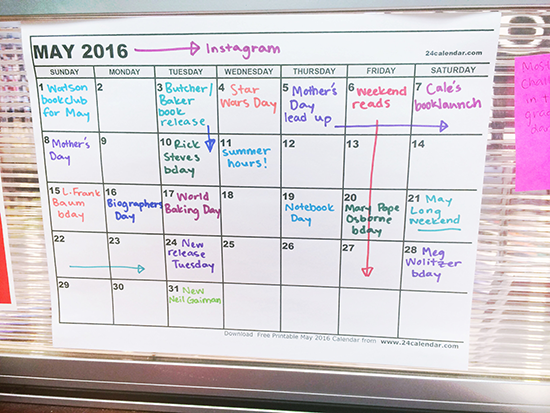 MAY 2016 Instagram
24calendar.com
SUNDAY MONDAY TUESDAY WEDNESDAY THURSDAY FRIDAY SATURDAY
1 Watson
bookclub
for May
2
3 Butcher/
Baker
book
release
4 Star
Wars Day
5 Mother's
Day
lead up
6 Weekend
reads
7 Cale's
booklaunch
8 Mother's
Day
9
10 Rick
Steves
bday
11
summer
hours!
12
13
14
15 L. Frank
Baum
bday
16
Biographers
Day
17 World
Baking Day
18
19
Notebook
Day
20
Mary Pope
Osborne
bday
21 May
Long
weekend
22
23
24 New
release
Tuesday
25
26
27
28 Meg
Wolitzer
bday
29
30
31 New
Neil Gaiman
Download Free Printable May 2016 Calendar from www.24calendar.com
in t